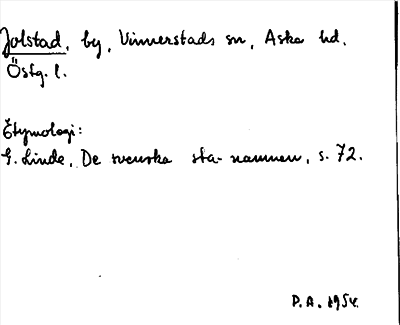 Jolstad, by, Vinnerstads sn, Aska hd.
Östg. l.
Etymologi:
G. Linde, De svenska sta-namnen, s. 72.
P.A. 1954.